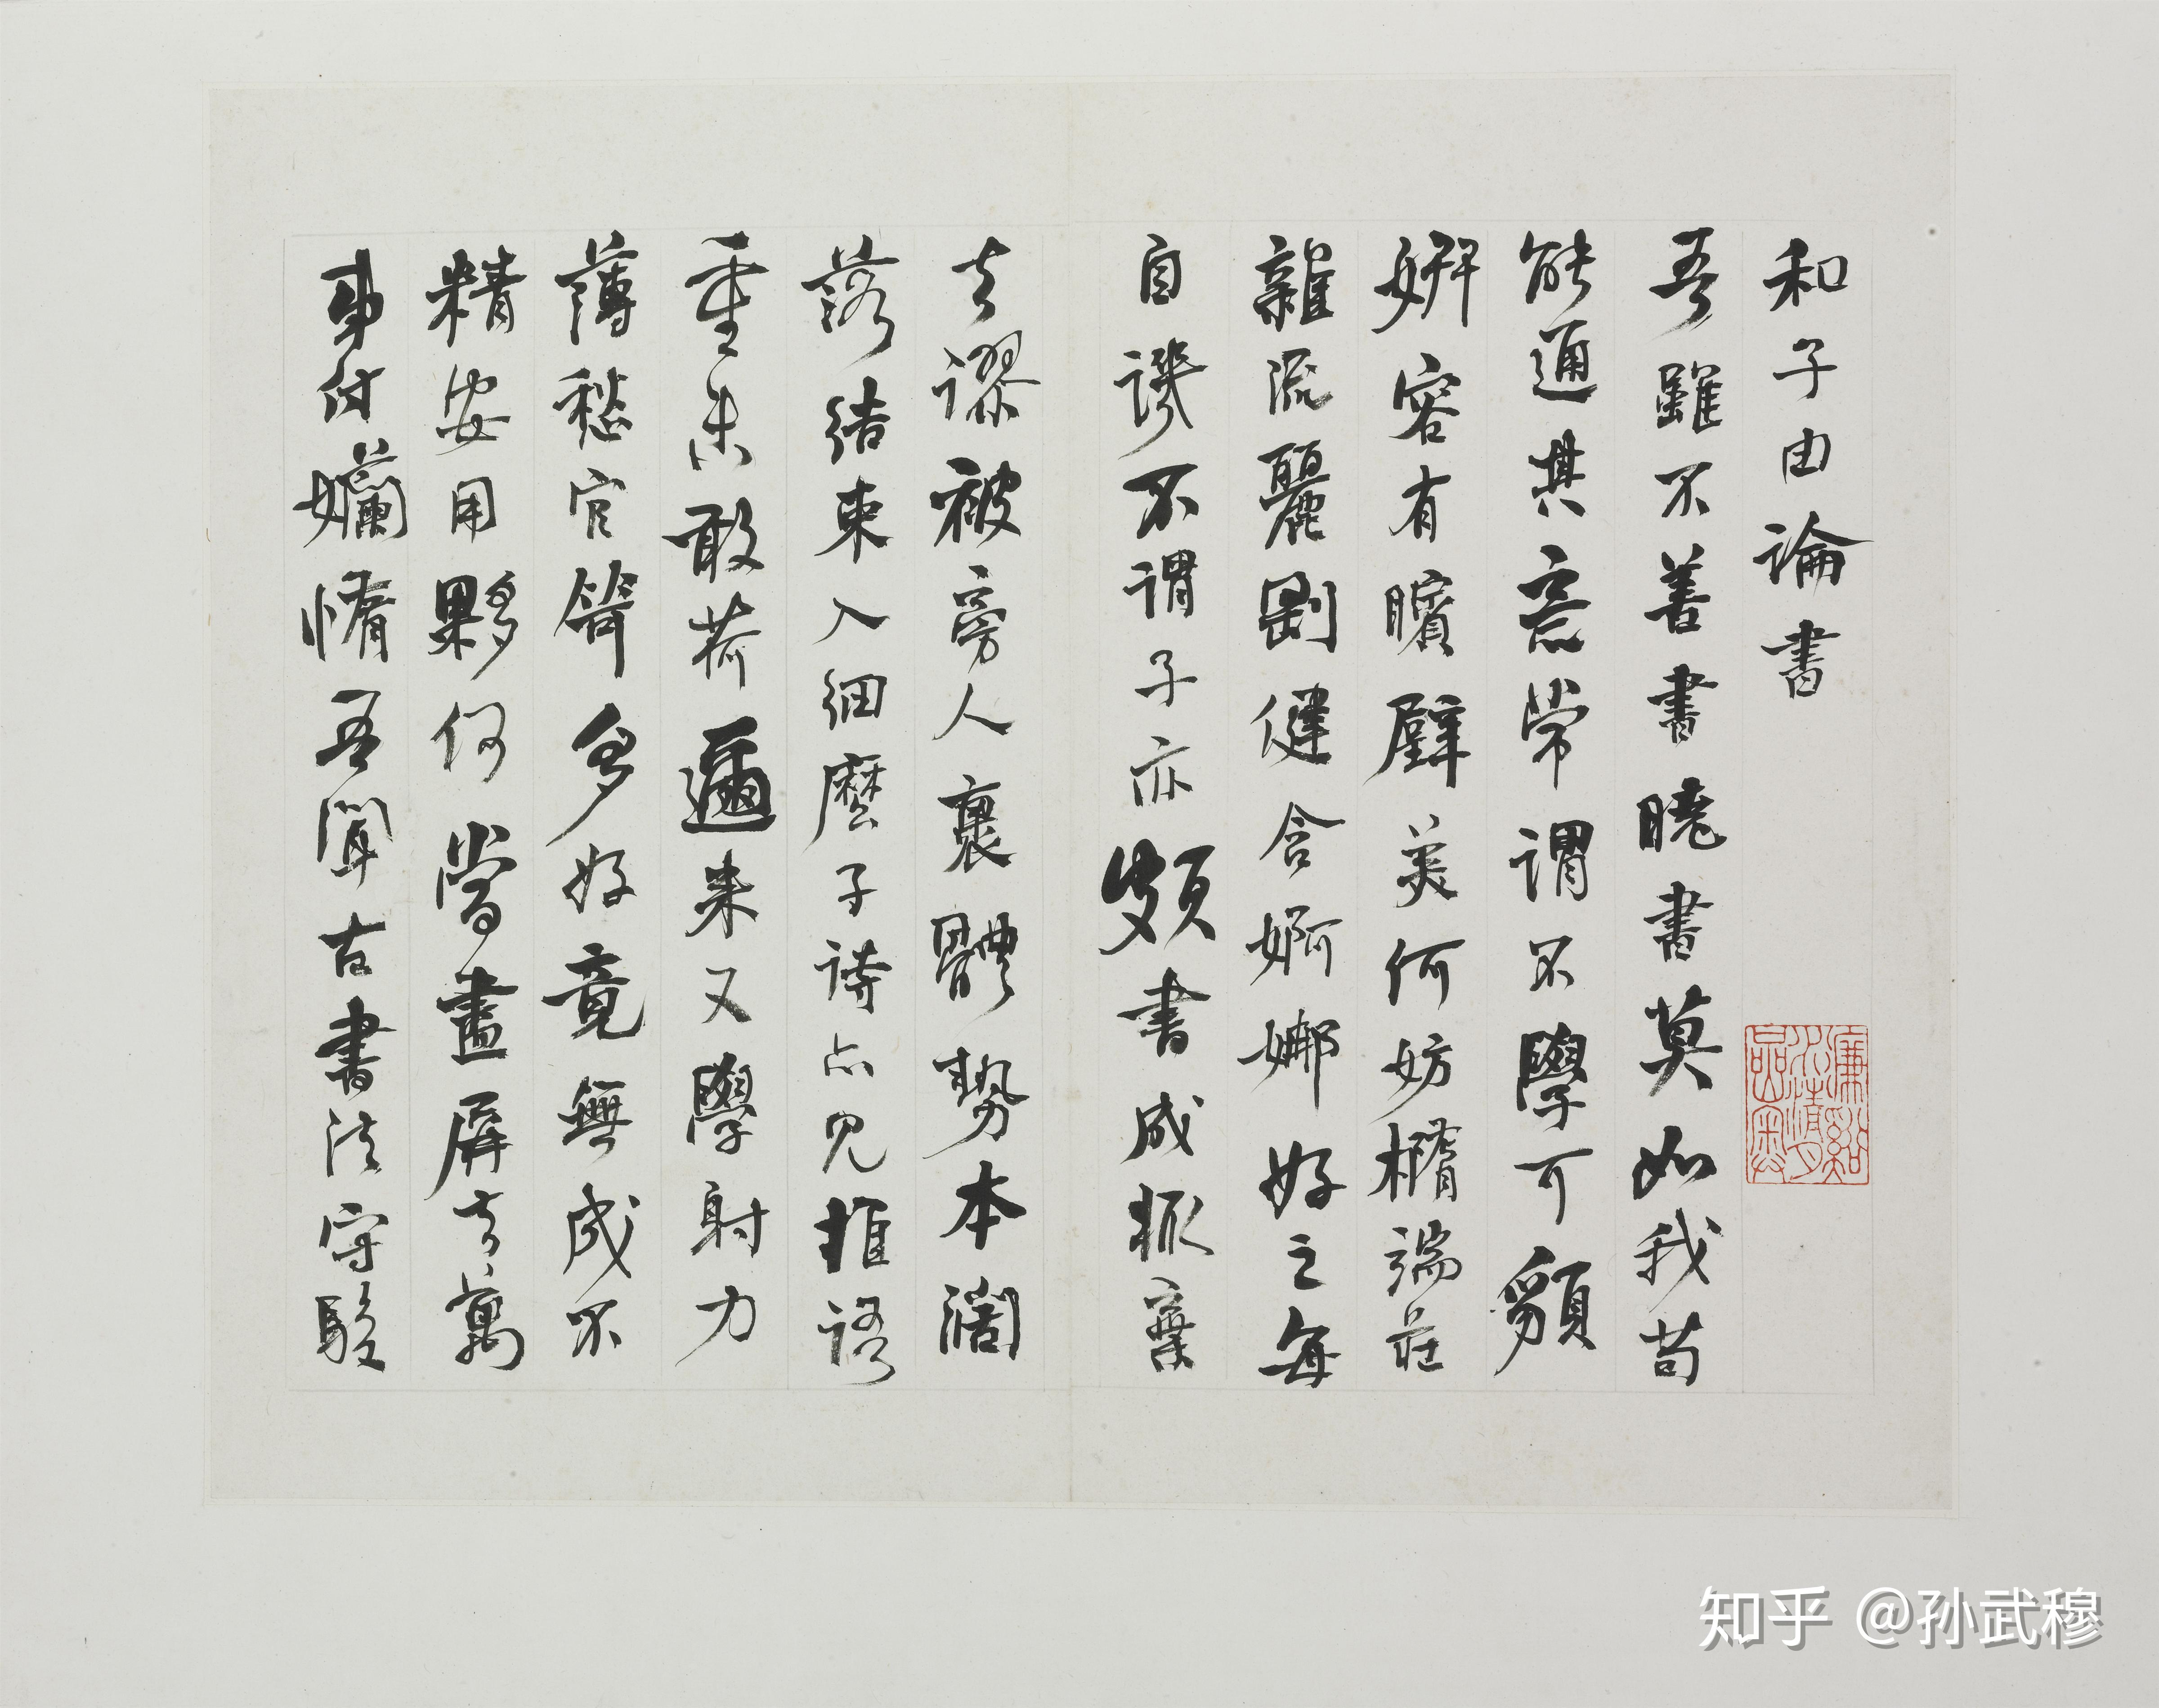 和子由論書
吾雖不善書曉書莫如我苟
能通其意常謂不學可貌
妍容有矉璧美何妨橢端莊
雜流麗剛健含婀娜好之每
自譏不謂子亦頗書成輒棄
去謬被旁人裹體勢本闊
落結束入細麽子詩亦見推語
重未敢荷邇來又學射力
薄愁官笴多好竟無成不
精安用夥何當盡屏去萬
事付嬾惰吾聞古書法守駿
知乎 @孙武穆